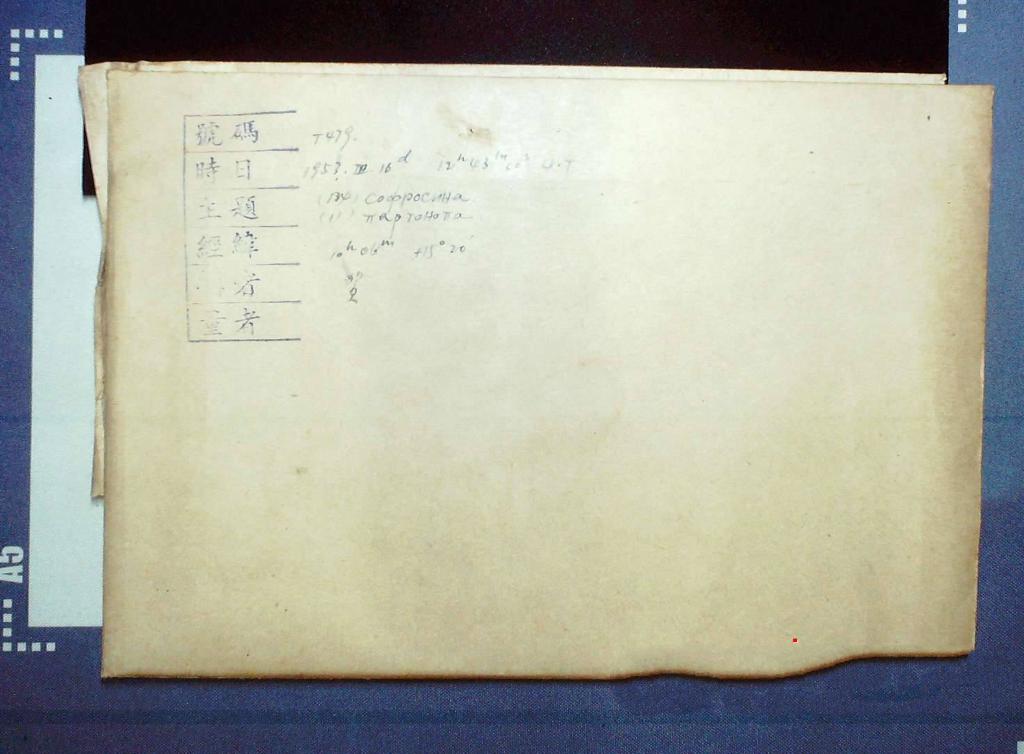 號碼 T479.
時日 195?. III 16ᵈ 12ʰ 43ᵐ U.T
主題 (134) Софросина
(11) Партенопа
經緯 10ʰ 06ᵐ +15° 20'
者
量者
A5